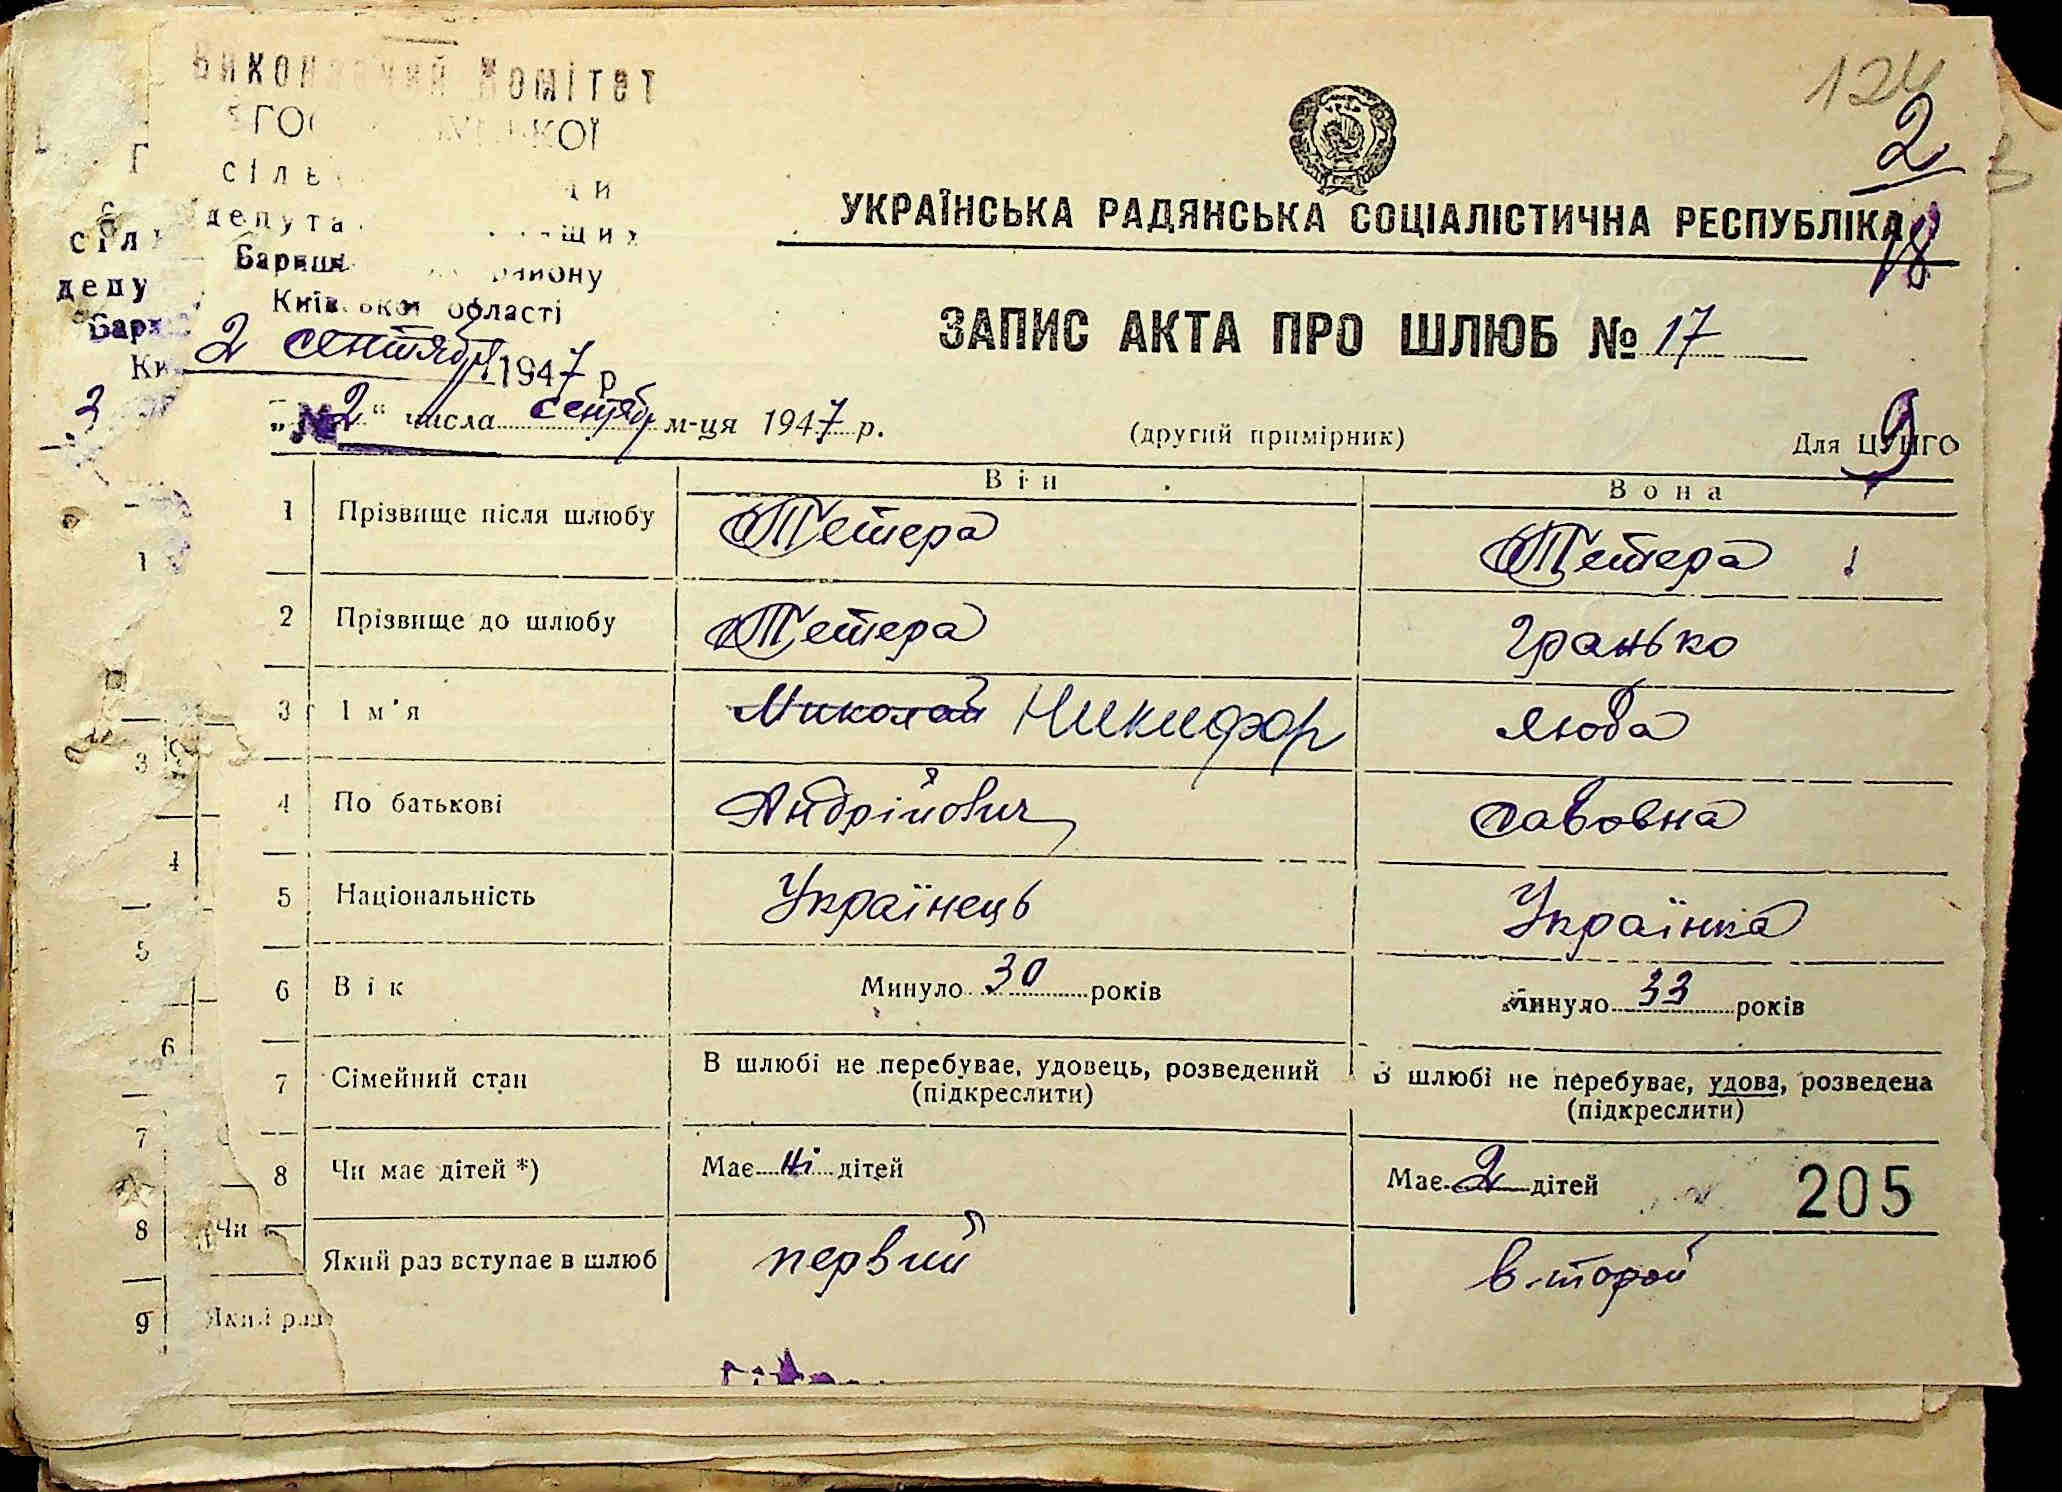 Виконавчий Комітет
депута
Київської області
2 сентября 1947 р
124
2
18
УКРАЇНСЬКА РАДЯНСЬКА СОЦІАЛІСТИЧНА РЕСПУБЛІКА
ЗАПИС АКТА ПРО ШЛЮБ № 17
„2“ числа сентябр м-ця 1947 р.
(другий примірник)
Для ЦУНГО
9
Він
Вона
1 Прізвище після шлюбу Тетера Тетера
2 Прізвище до шлюбу Тетера Гранько
3 Ім'я Миколай Никифор Люба
4 По батькові Андрійович Савовна
5 Національність Українець Українка
6 Вік Минуло 30 років Минуло 33 років
7 Сімейний стан В шлюбі не перебуває, удовець, розведений (підкреслити) В шлюбі не перебуває, удова, розведена (підкреслити)
8 Чи має дітей *) Має ні дітей Має 2 дітей
205
Який раз вступає в шлюб первий второй